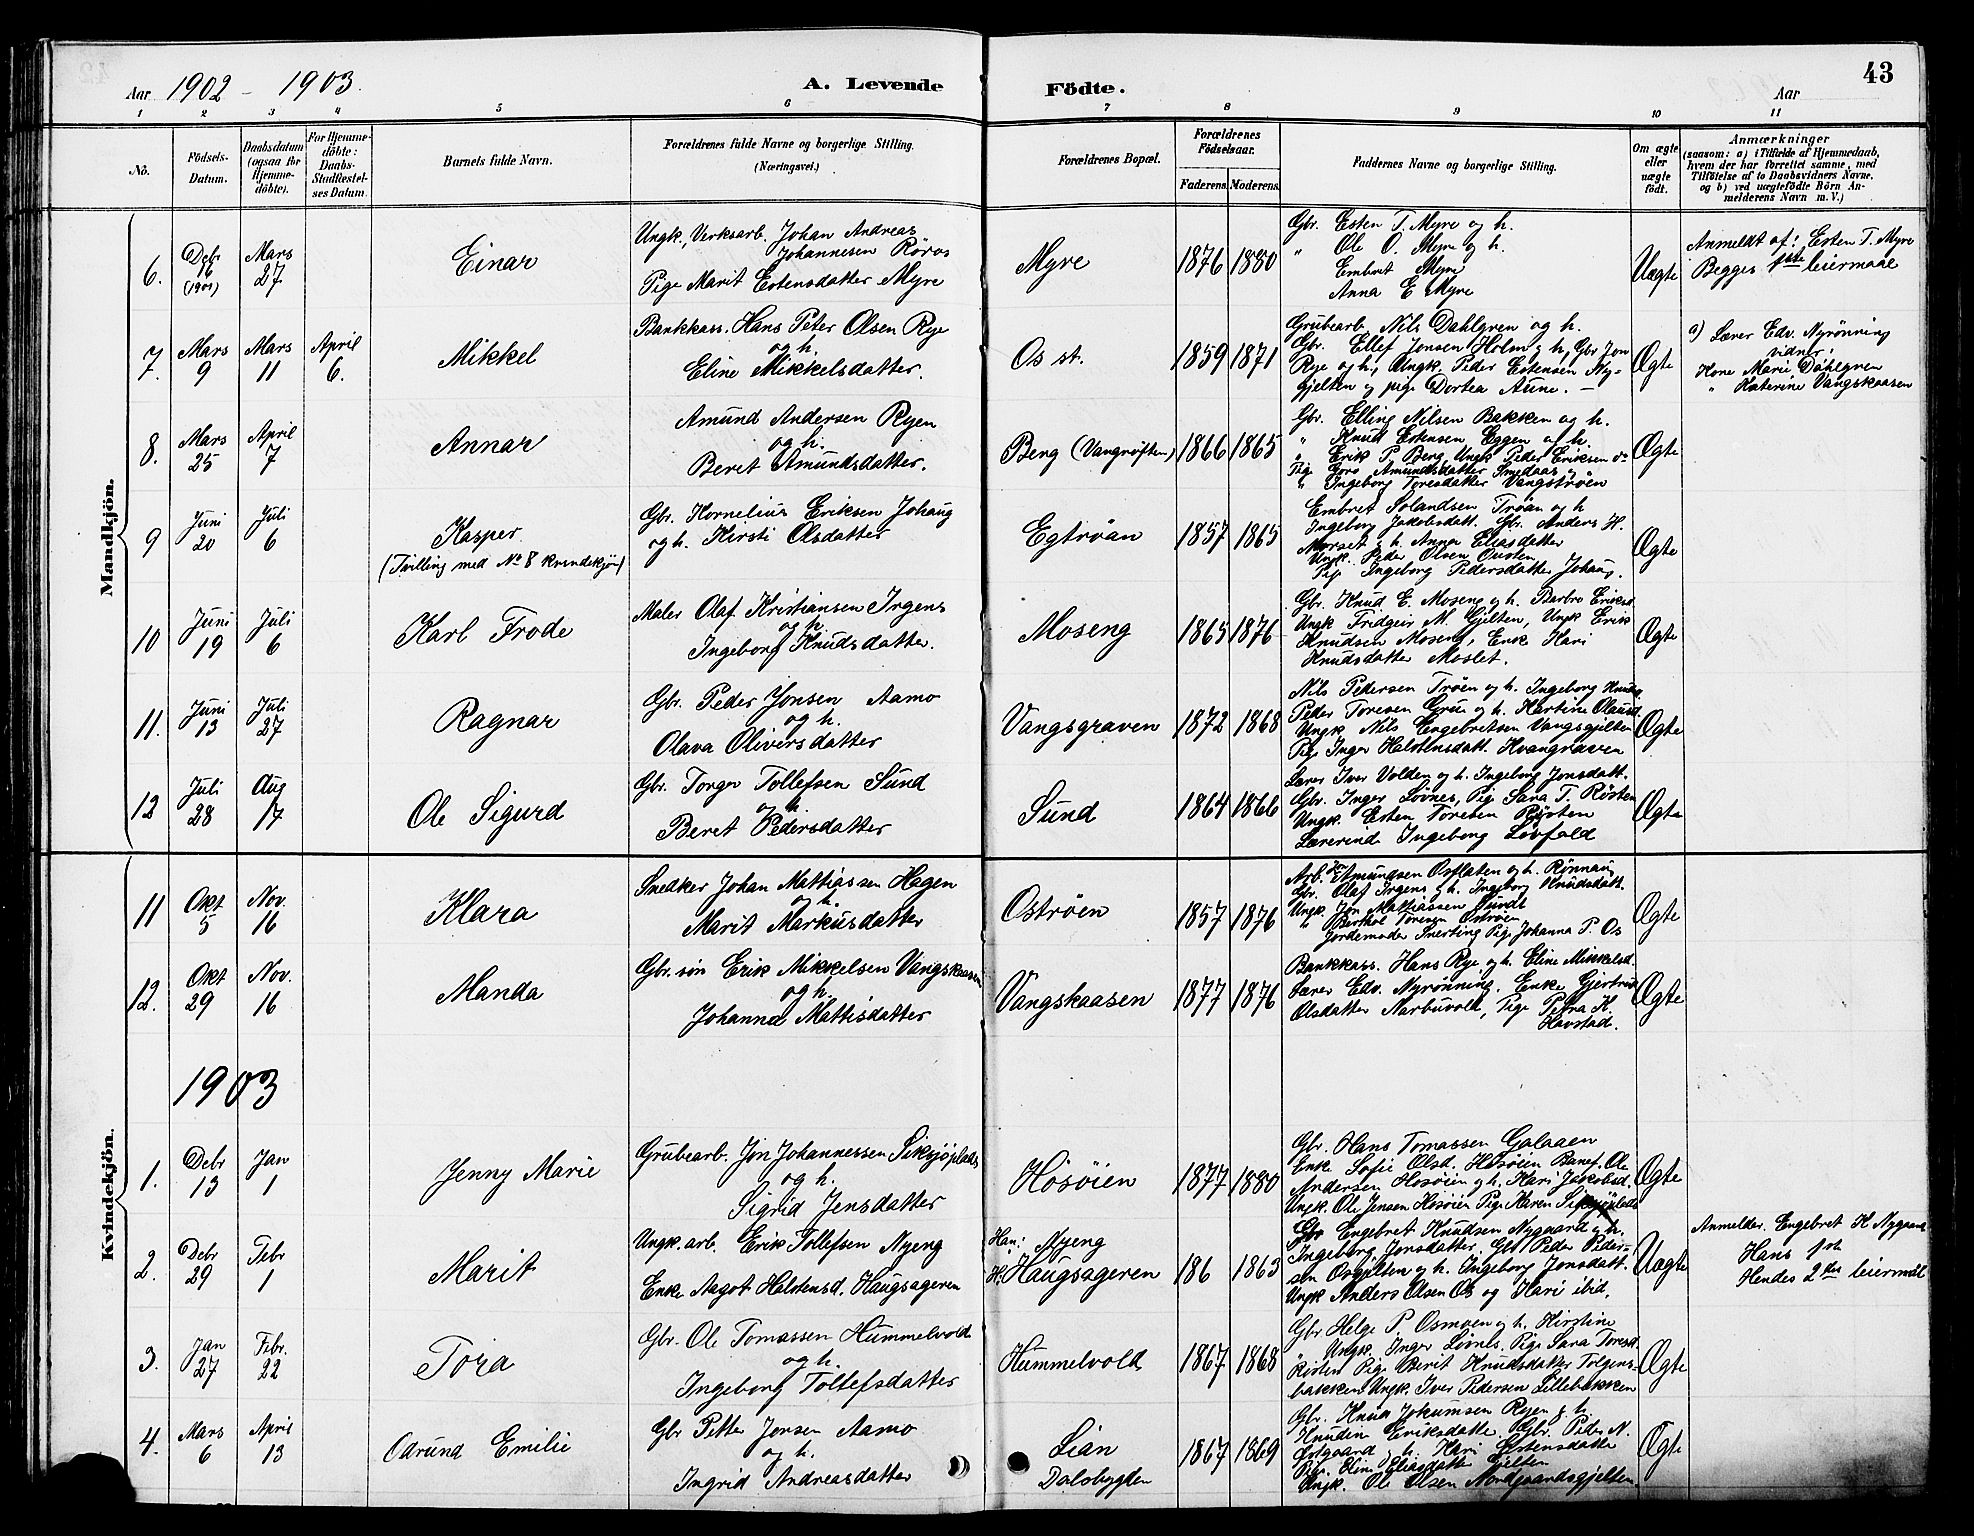 Aar 1902 - 1903.
A. Levende Födte.
Aar
43
1 2 3 4 5 6 7 8 9 10 11
No.
Födsels-Datum.
Daabsdatum (ogsaa for Hjemmedöbte).
For Hjemmedöbte: Daabs-Stadfæstelses Datum.
Barnets fulde Navn.
Forældrenes fulde Navne og borgerlige Stilling. (Næringsvei.)
Forældrenes Bopæl.
Forældrenes Födselsaar.
Faderens. Moderens.
Faddernes Navne og borgerlige Stilling.
Om ægte eller uægte født.
Anmærkninger
(saasom: a) i Tilfælde af Hjemmedaab, hvem der har forrettet samme, med Tilföielse af to Daabsvidners Navne, og b) ved uægtefödte Börn Anmelderens Navn m. V.)
Mandkjön.
6. Debr 16 (1901) Mars 27
Einar
Ungk., Verksarb. Johan Andreas
Johannesen Røros
Pige Marit Estensdatter Myre
Myre
1876 1880
Gbr. Esten T. Myre og h.
" Ole O. Myre og h.
Embret Myre
Anna E Myre
Uægte
Anmeldt af: Esten T. Myre
Begges 1ste leiermaal
7. Mars 9 Mars 11 April 6.
Mikkel
Bankkass. Hans Peter Olsen Rye
og h.
Eline Mikkelsdatter.
Os st.
1859 1871
Grubearb. Nils Dahlgren og h.
Gbr. Ellef Jonsen Holm og h, Gbr Jon
Rye og h, Ungk. Peder Estensen Ny-
gjelten og pige Dortea Aune. —
Ægte
a) Lærer Edv. Nyrønning
vidner:
Kone Marie Dahlgren
" Katerine Vangskaasen
8. Mars 25 April 7
Annar
Amund Andersen Ryen
og h.
Beret Amundsdatter.
Berg (Vangrøften)
1866 1865
Gbr. Elling Nilsen Bakken og h.
" Knud Estensen Eggen og h.
" Erik P. Berg, Ungk Peder Eriksen do
Pige Goro Amundsdatter Smedaas og
" Ingeborg Toresdatter Vangstrøen
Ægte
9 Juni 20 Juli 6
Kasper
(Tvilling med No 8 kvindekjøn)
Gbr. Kornelius Eriksen Johaug
og h. Kirsti Olsdatter
Egtrøan
1857 1865
Embret Trøan og h
Ingeborg Jakobsdatt. Gbr. Anders H.
Morset og h. Anne Eliasdatter
Ungk. Peder Olsen
Pige Ingeborg Pedersdatter Johaug.
Ægte
10 Juni 19 Juli 6
Karl Frode
Maler Olaf Kristiansen Irgens
og h
Ingeborg Knudsdatter.
Moseng
1865 1876
Gbr. Knud E. Moseng og h. Barbro Eriksd
Ungk Fridgeir M. Gjelten, Ungk Erik
Knudsen Moseng, Enke Kari
Knudsdatter Moslet.
Ægte
11. Juni 13 Juli 27
Ragnar
Gbr. Peder Jonsen Aamo
og h.
Olava Oliversdatter
Vangsgraven
1872 1868
Nils Pedersen Trøen og h. Ingeborg Knudsd.
Peder Toresen Grue og h. Martine Olausd
Ungk Nils Engebretsen Vangsgjelten
Pig Inger Halstensdatt. Kvangraven
Ægte
12 Juli 28 Aug 17
Ole Sigurd
Gbr. Torger Tollefsen Sund
og h
Beret Pedersdatter
Sund
1864 1866
Lærer Iver Volden og h. Ingeborg Jonsdatt.
Gbr. Inger Løvnes, Pig Sara T. Røsten
Ungk. Esten Toresen Røsten
Lærerind Ingeborg Lovfald
Ægte
Kvindekjön.
11 Okt 5 Nov. 16
Klara
Snedker Johan Mattiassen Hagen
og h.
Marit Markusdatter
Ostrøen
1857 1876
Arb. Amundsen Osflaten og h. Rønnaug
Gbr. Olaf Irgens og h. Ingeborg Knudsdatt.
Ungk. Jon Mattiassen Sundt
" Berthol Toresen Ostrøen
Jordemoder Snerting Pige Johanna P. Os
Ægte
12. Okt 29 Nov. 16
Manda
Gbr. søn Erik Mikkelsen Vangskaasen
og h.
Johanna Mattisdatter
Vangskaasen
1877 1876
Bankkass. Hans Rye og h. Eline Mikkelsd.
Lærer Edv. Nyrønning. Enke Gjertrud
Olsdatter Narbuvold, Pige Petra K.
Havstad.
Ægte
1903
1. Debr 13 Jan 1
Jenny Marie
Grubearb. Jon Johannessen Siksjøplads
og h.
Sigrid Jensdatter
Høsøien
1877 1880
Gbr. Hans Tomassen Galaaen
Enke Sofie Olsd. Høsøien Banef. Ole
Andersen Høsøien og h. Kari Jakobsd.
Ungk. Ole Jensen Høsøien Pige Karen Siksjøplads
Ægte
2. Debr 29 Febr 1
Marit
Ungk. arb. Erik Tollefsen Nyeng
Enke Aagot Halstensd. Haugsageren
Han: Nyeng
H: Haugsageren
186 1863
Gbr Engebret Knudsen Nygaard og h.
Ingeborg Jonsdatter. Gbr Peder Peder-
sen Osgjelten og h. Ingeborg Jonsdatt.
Ungk Anders Olsen Os og Kari ibid.
Uægte
Anmelder. Engebret K Nygaard
Hans 1ste
Hendes 2det leiermål
3. Jan 27 Febr. 22
Tora
Gbr. Ole Tomassen Hummelvold
og h.
Ingeborg Tollefsdatter
Hummelvold
1867 1868
Gbr Helge P. Osmoen og h. Kirstine
" Ungk. Inger Løvnes. Pige Sara Toresd
Røsten Pige Berit Knudsdatter Tolgens-
bakken Ungk. Iver Pedersen Lillebakken
Ægte
4. Mars 6 April 13
Odrund Emilie
Gbr Petter Jonsen Aamo
og h.
Ingrid Andreasdatter
Lian
Dalsbygden
1867 1869
Gbr. Knud Jokumsen Ryen og h.
Eriksdatter. Gbr. Peder N.
Østgaard og h. Kari Estensdatter
Pige. Elin Eliasdatter Gjelten
Ungk. Ole Olsen Nordgaardsgjelten.
Ægte